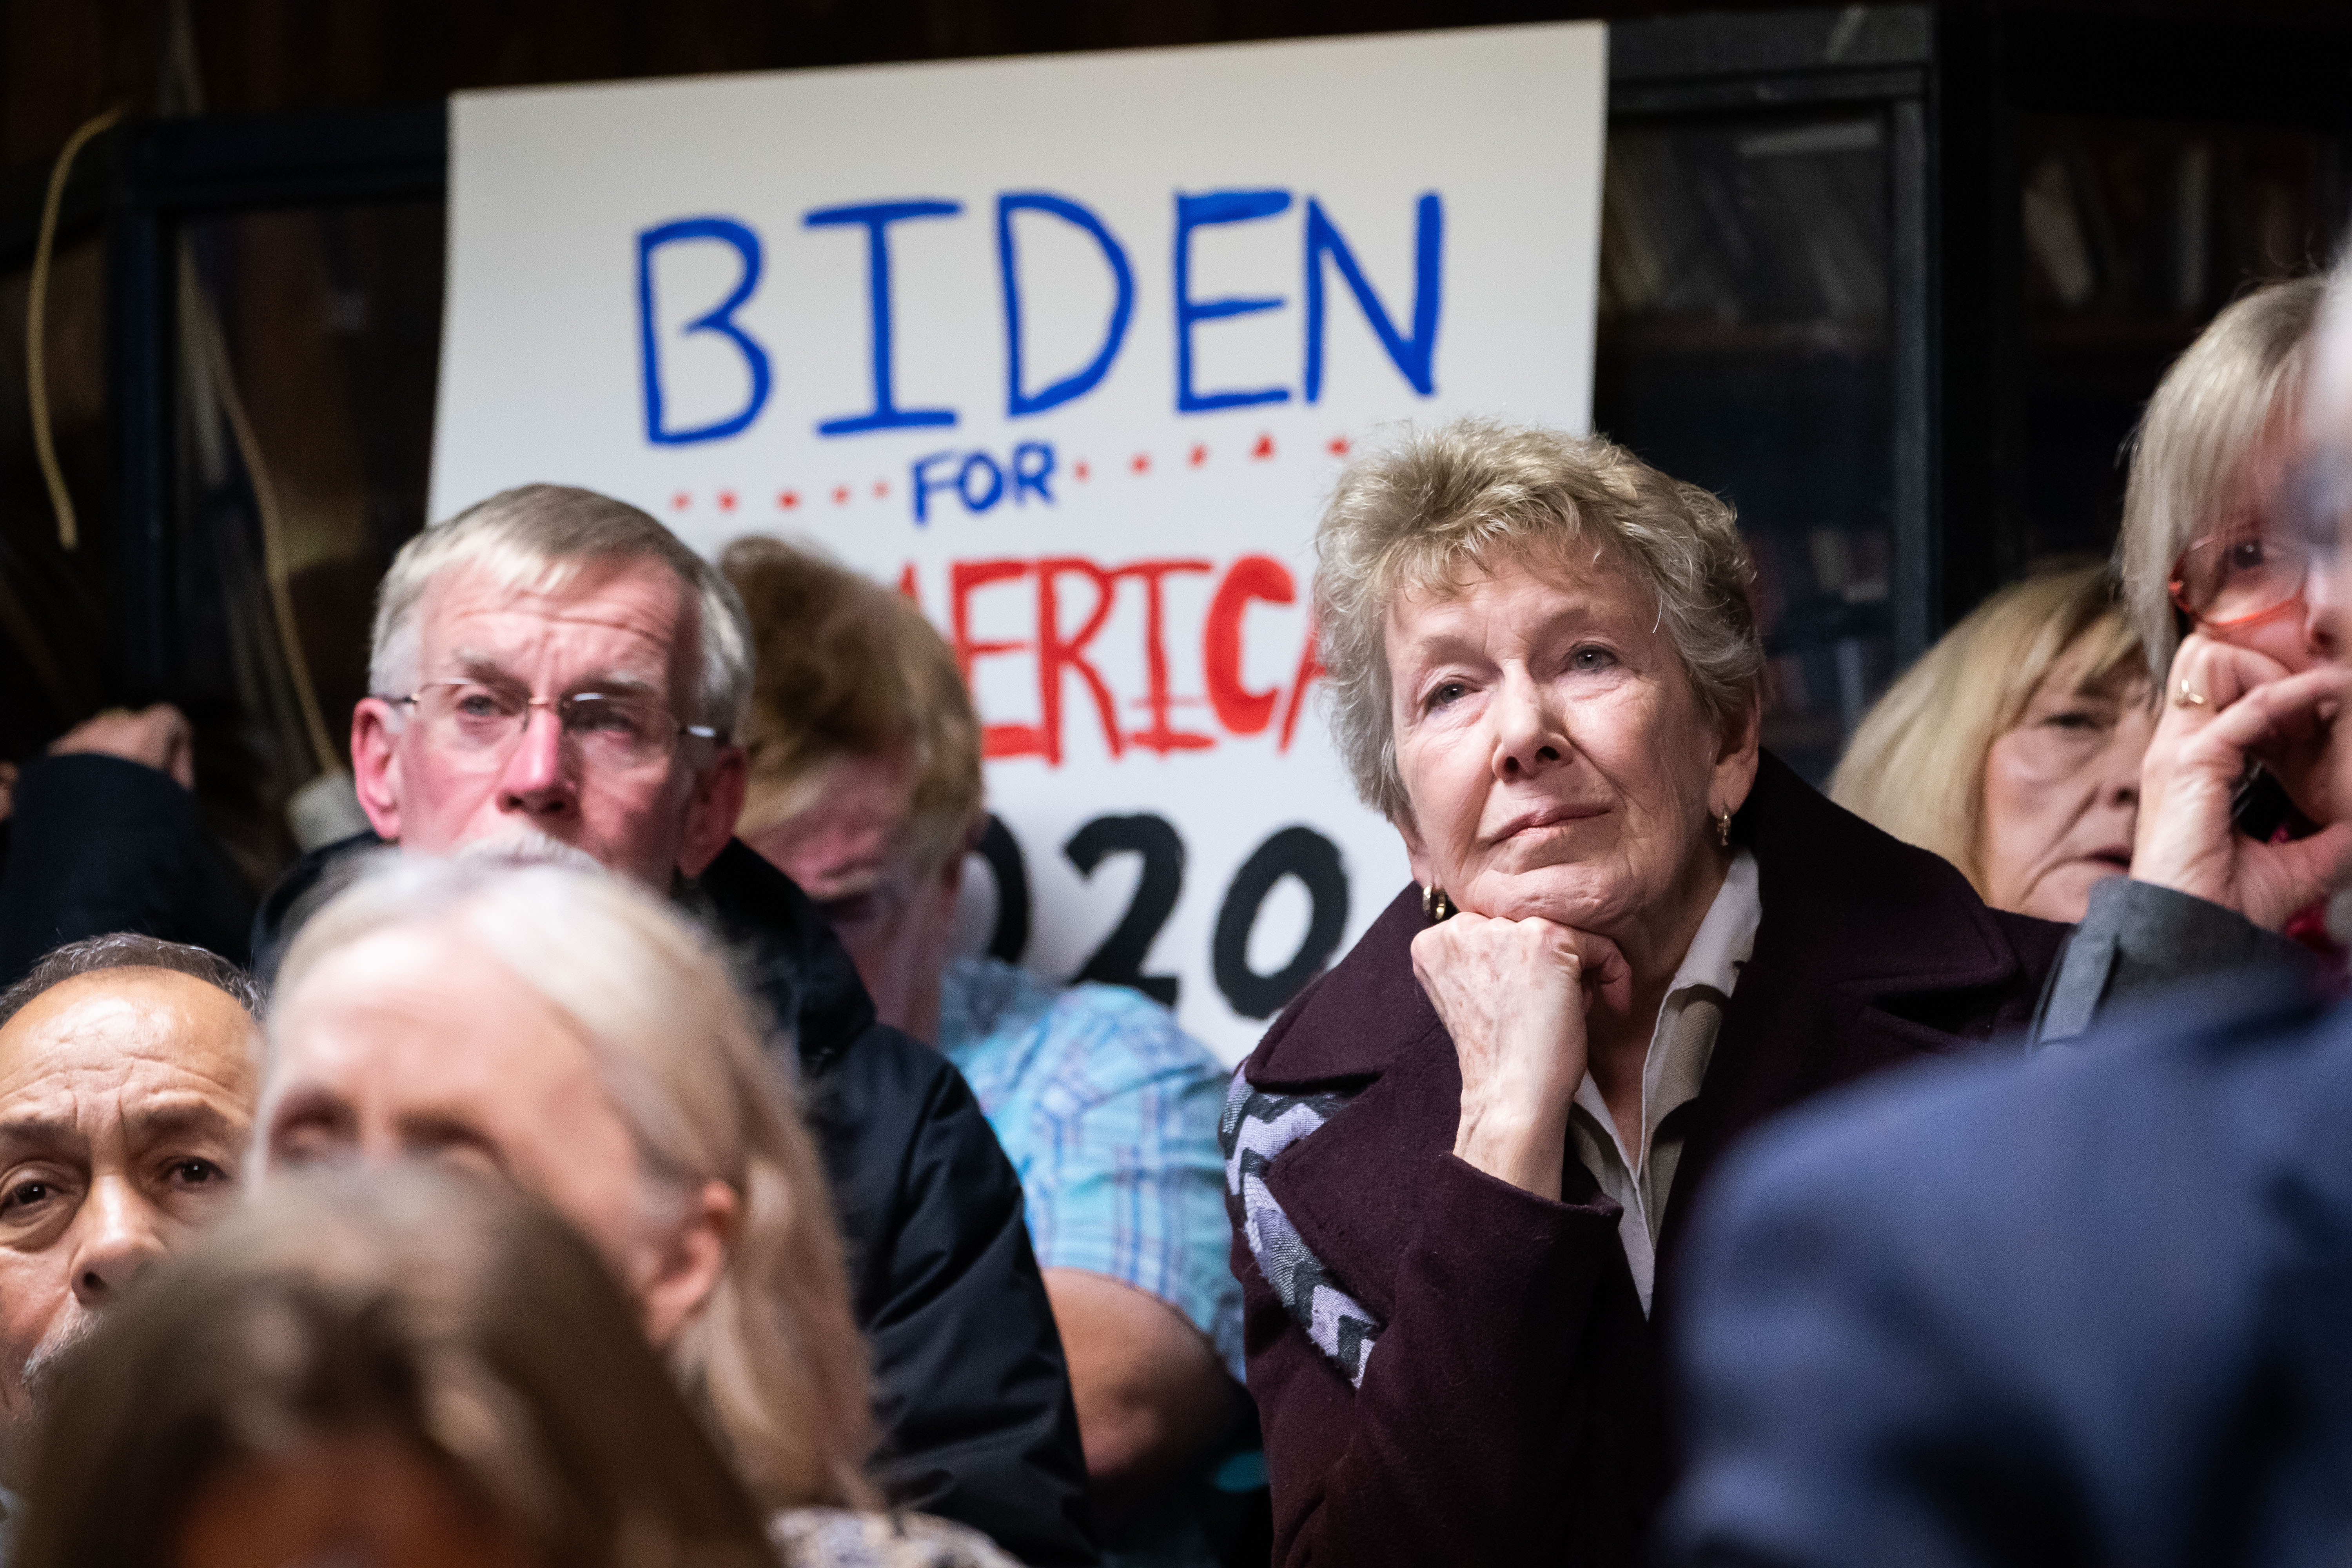 BIDEN
FOR
AMERICA
2020